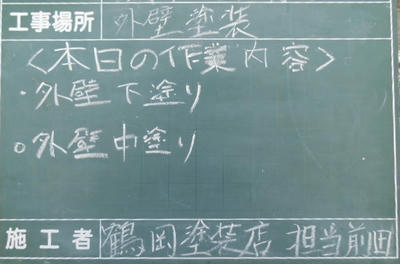 工事場所 外壁塗装
<本日の作業内容>
・外壁下塗り
○外壁中塗り
施工者 鶴岡塗装店 担当前田